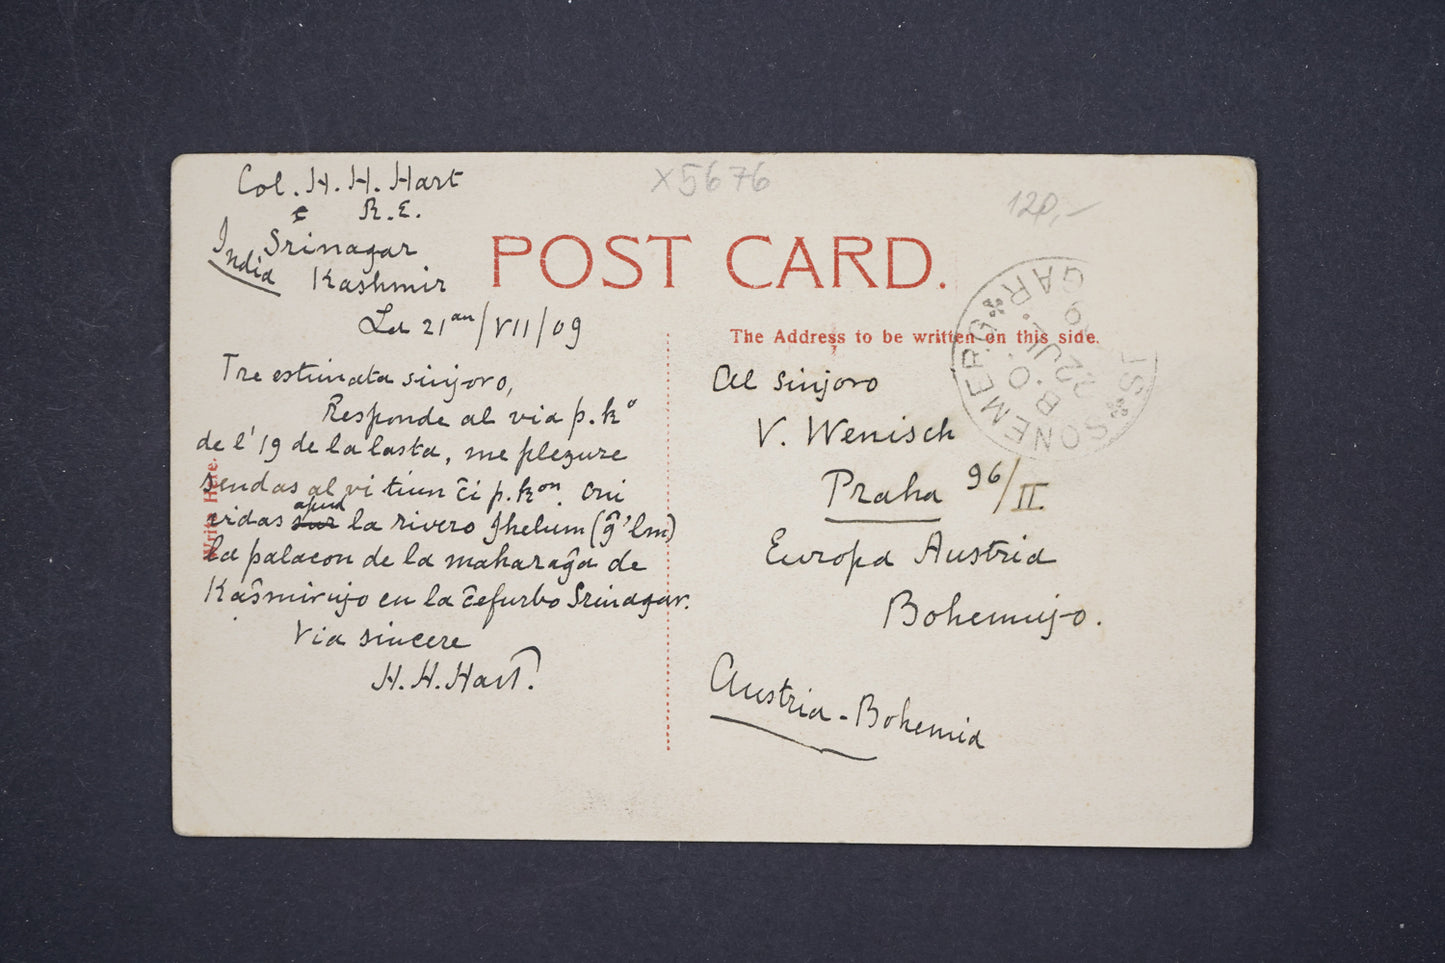 Col. H. H. Hart
R.E.
Srinagar
India
Kashmir
La 21an/VII/09
Tre estimata sinjoro,
Responde al via p.ko
de l' 19 de la lasta, me plezure
sendas al vi tiun ĉi p.kon. Oni
vidas sur apud la rivero Jhelum (ĝ'lm)
la palacon de la maharaĝa de
Kaŝmirujo en la ĉefurbo Srinagar.
Via sincere
H. H. Hart.
Write Here.
X5676
120,-
POST CARD.
The Address to be written on this side.
Al sinjoro
V. Wenisch
Praha 96/II
Europa Austria
Bohemujo.
Austria-Bohemia
SONEMERG
GAR.
B.O.
22 JUL
09